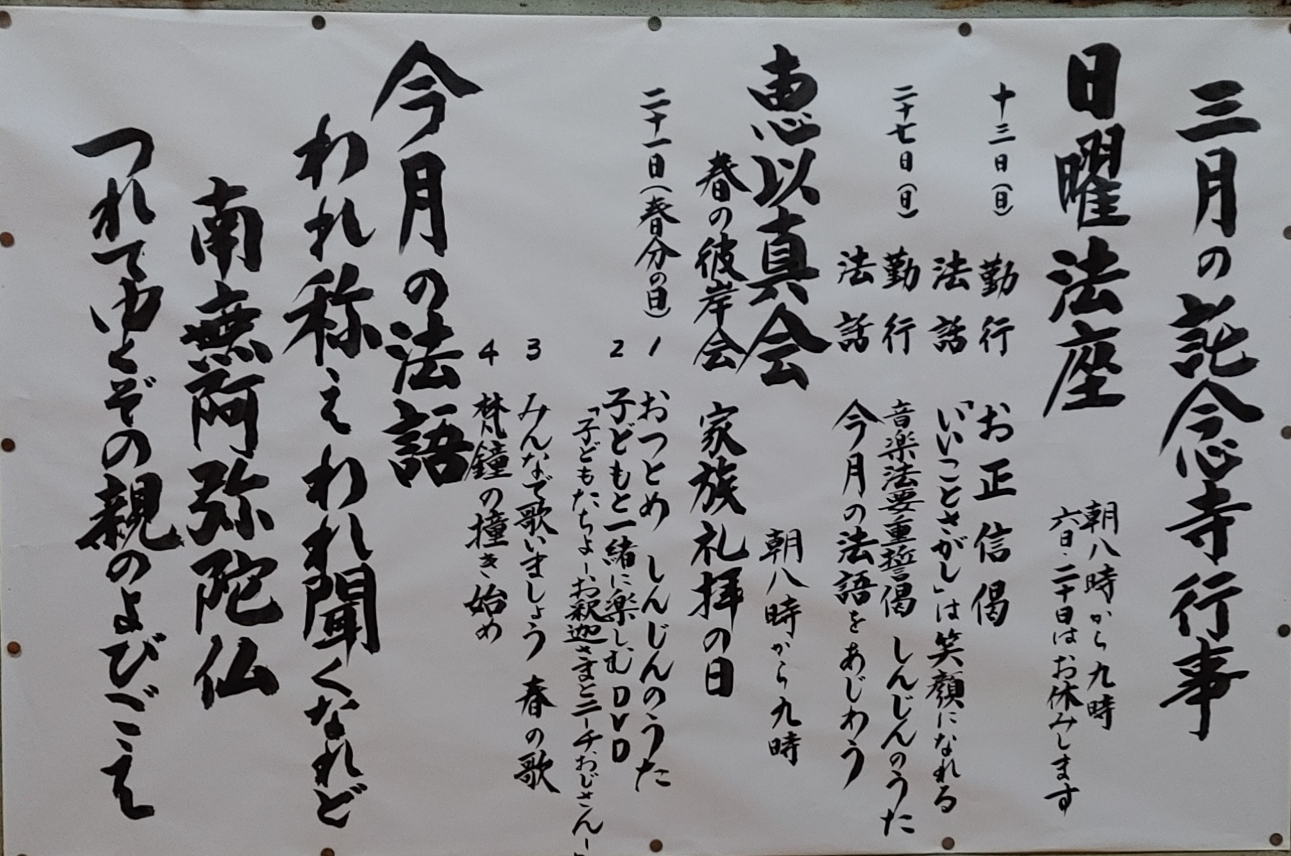 三月の託念寺行事
日曜法座
朝八時から九時
六日・二十日はお休みします
十三日(日) 勤行 お正信偈
法話 「いいことさがし」は笑顔になれる
二十七日(日) 勤行 音楽法要重誓偈 しんじんのうた
法話 今月の法語をあじわう
恵以真会 朝八時から九時
春の彼岸会 家族礼拝の日
二十一日(春分の日) 1 おつとめ しんじんのうた
2 子どもと一緒に楽しむDVD
「子どもたちよーお釈迦さまとニーチおじさんー」
3 みんなで歌いましょう 春の歌
4 梵鐘の撞き始め
今月の法語
われ称えわれ聞くなれど
南無阿弥陀仏
つれてゆくぞの親のよびごえ